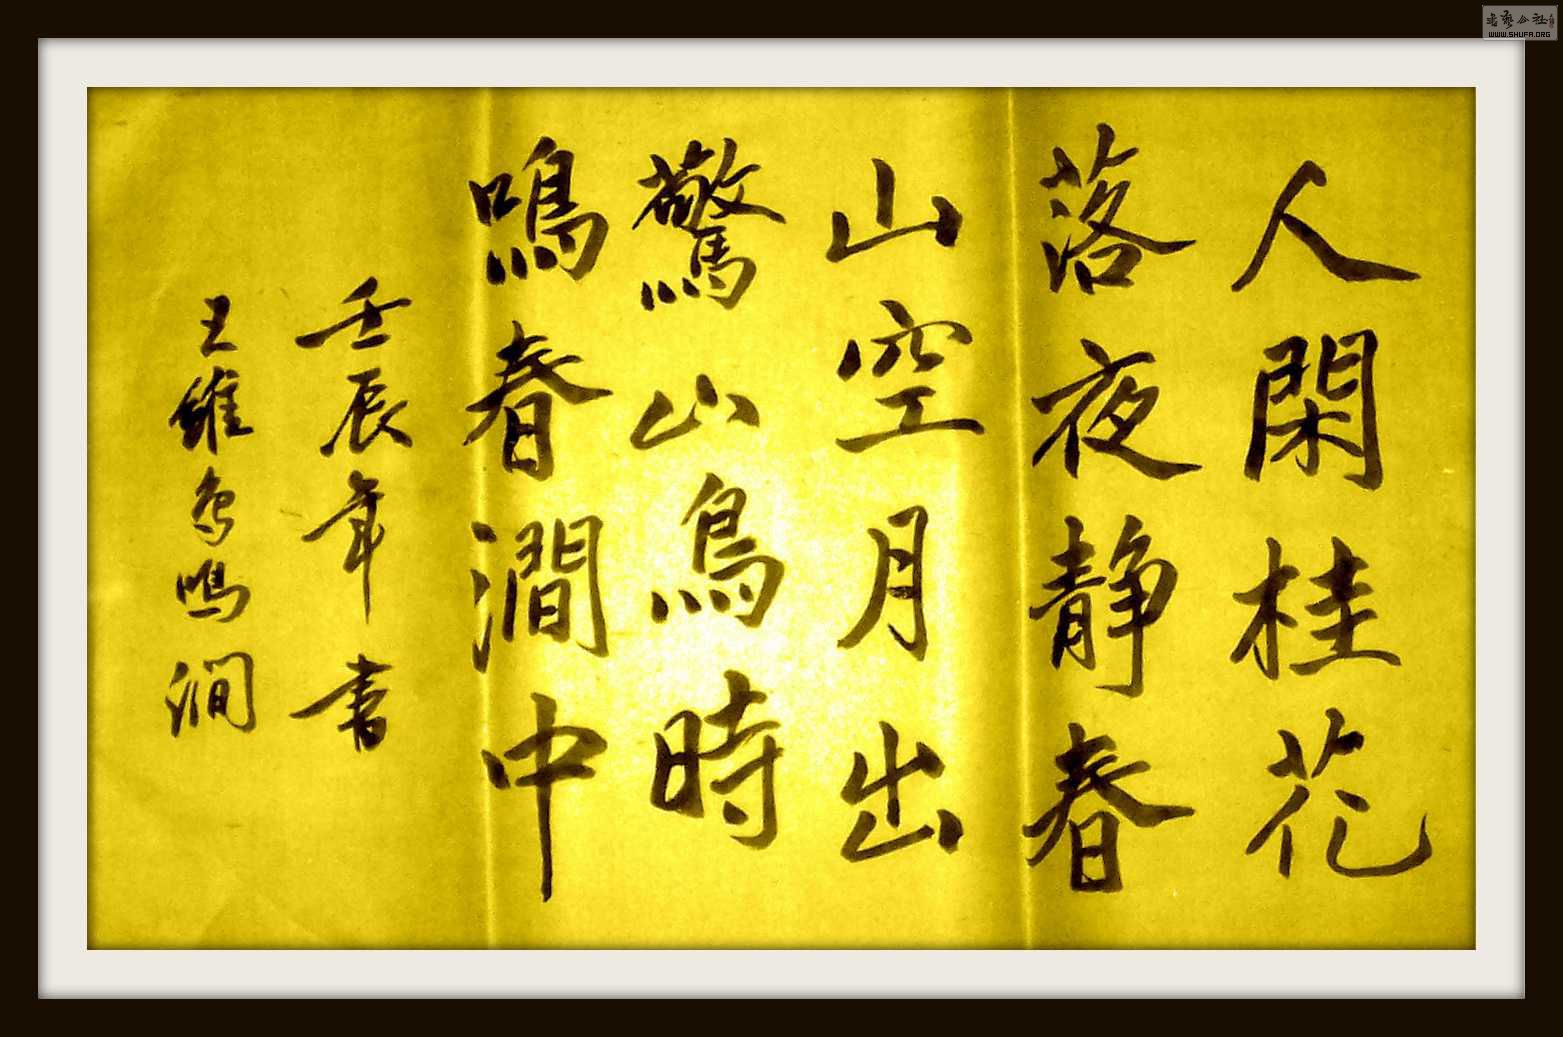 人閑桂花
落夜静春
山空月出
驚山鳥時
鳴春澗中
壬辰年書
王維鳥鳴澗
書藝公社
WWW.SHUFA.ORG